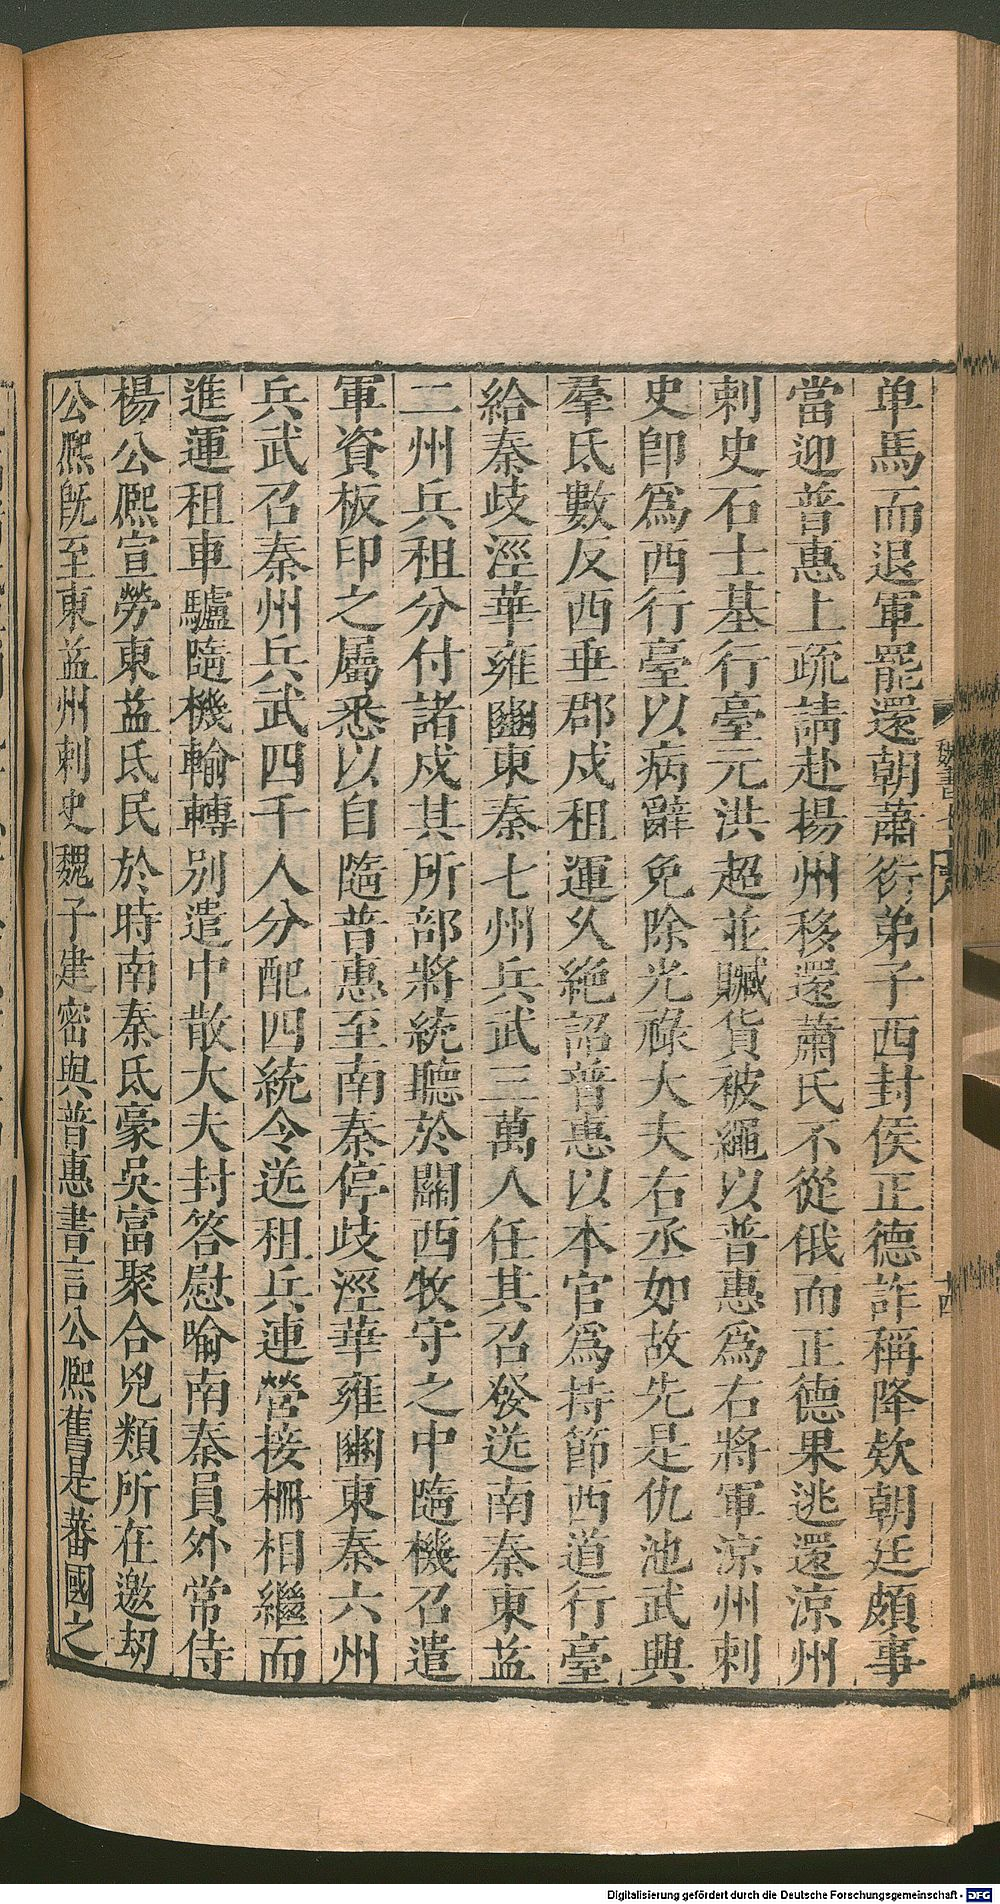 单馬而退軍罷還朝蕭衍弟子西封侯正德詐稱降欵朝廷頗事
當迎普惠上疏請赴楊州移還蕭氏不從俄而正德果逃還涼州
刺史石士基行臺元洪超並贓貨被繩以普惠爲右將軍涼州刺
史卽爲西行臺以病辭免除光祿大夫右丞如故先是仇池武興
羣氐數反西垂郡戍租運乆絶詔普惠以本官爲持節西道行臺
給秦歧涇華雍豳東秦七州兵武三萬人任其召發送南秦東益
二州兵租分付諸戍其所部將統聽於關西牧守之中隨機召遣
軍資板印之屬悉以自隨普惠至南秦停歧涇華雍豳東秦六州
兵武召秦州兵武四千人分配四統令送租兵連營接柵相繼而
進運租車驢隨機輸轉別遣中散大夫封答慰喻南秦員外常侍
楊公熙宣勞東益氐民於時南秦氐豪吳富聚合兇類所在邀刼
公熙旣至東益州刺史魏子建密與普惠書言公熙舊是蕃國之
魏書
十四
Digitalisierung gefördert durch die Deutsche Forschungsgemeinschaft - DFG